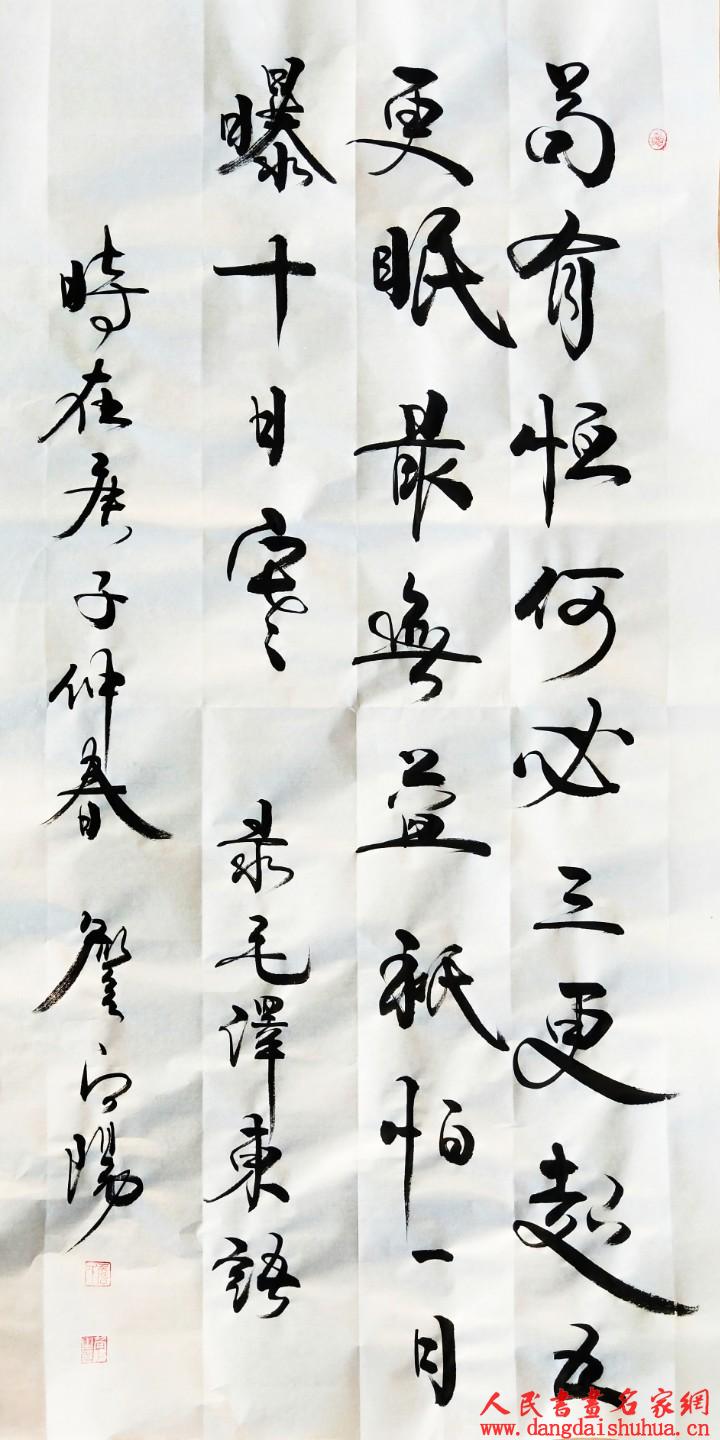 苟有恒何必三更起五
更眠最無益秖怕一日
曝十日寒 录毛澤東語
時在庚子仲春 詹向陽
人民書畫名家網
www.dangdaishuhua.cn